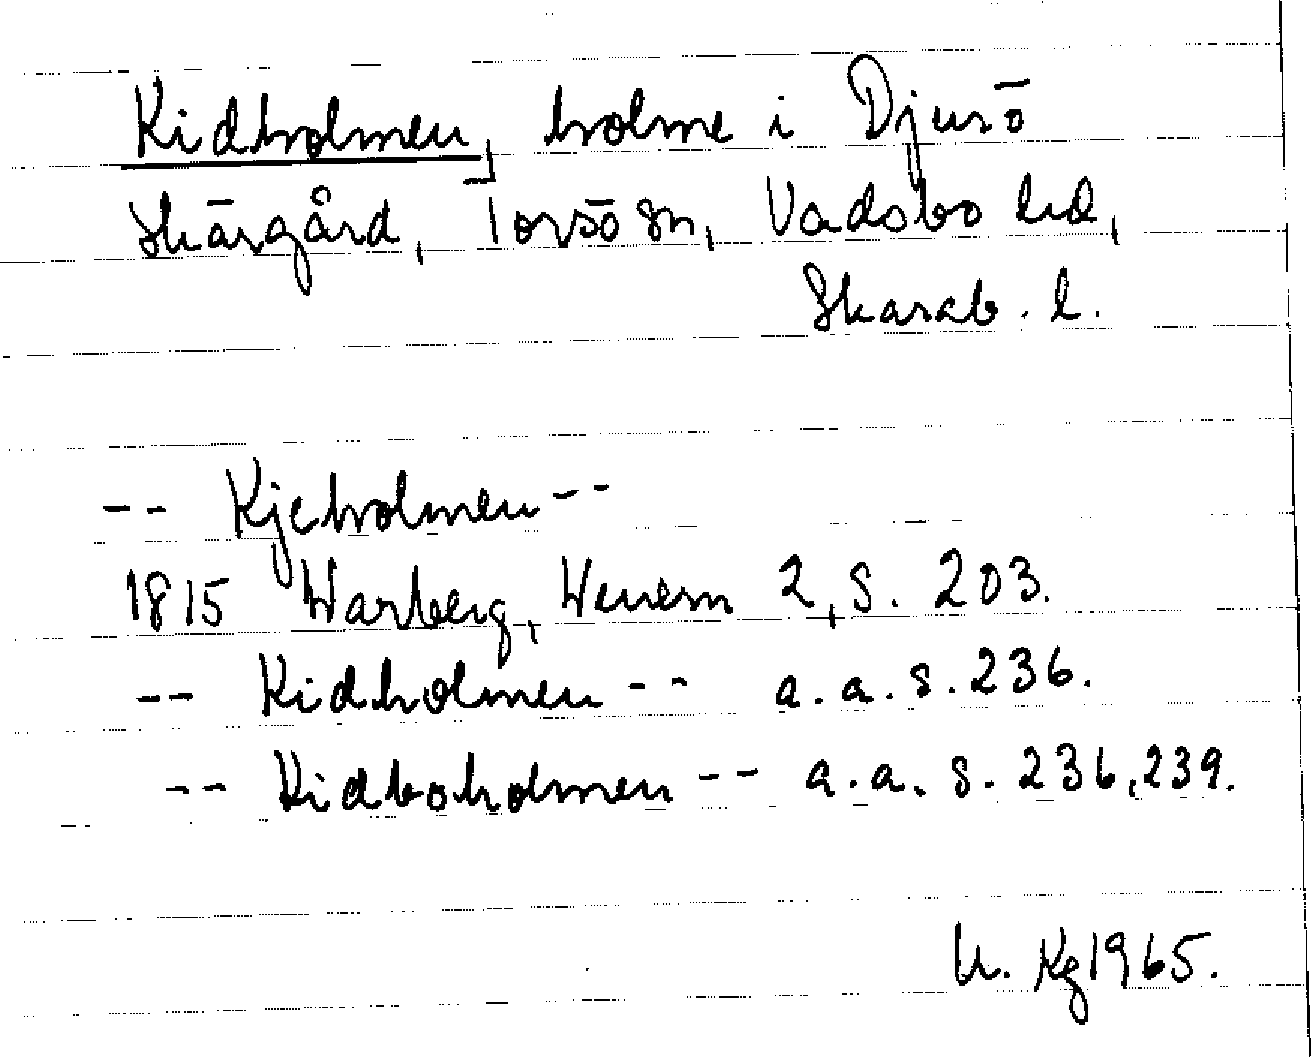 Kidholmen, holme i Djurö
skärgård, Torsö sn, Vadsbo hd,
Skarab. l.
-- Kjeholmen --
1815 Warberg, Wenern 2, s. 203.
-- Kidholmen -- a.a. s. 236.
-- Kidboholmen -- a.a. s. 236, 239.
U. Kg 1965.